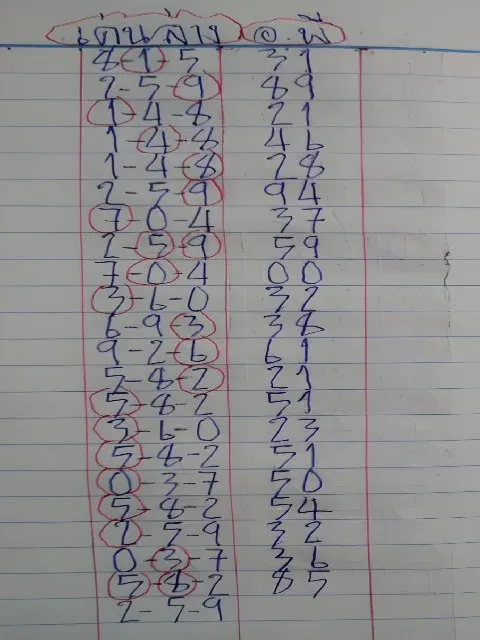 เด่นล่าง อ.พี
8-1-5 31
2-5-9 89
1-4-8 21
1-4-8 46
1-4-8 28
2-5-9 94
7-0-4 37
2-5-9 59
7-0-4 00
3-6-0 32
6-9-3 38
9-2-6 61
5-8-2 21
5-8-2 51
3-6-0 23
5-8-2 51
0-3-7 50
5-8-2 54
2-5-9 32
0-3-7 36
5-8-2 85
2-5-9